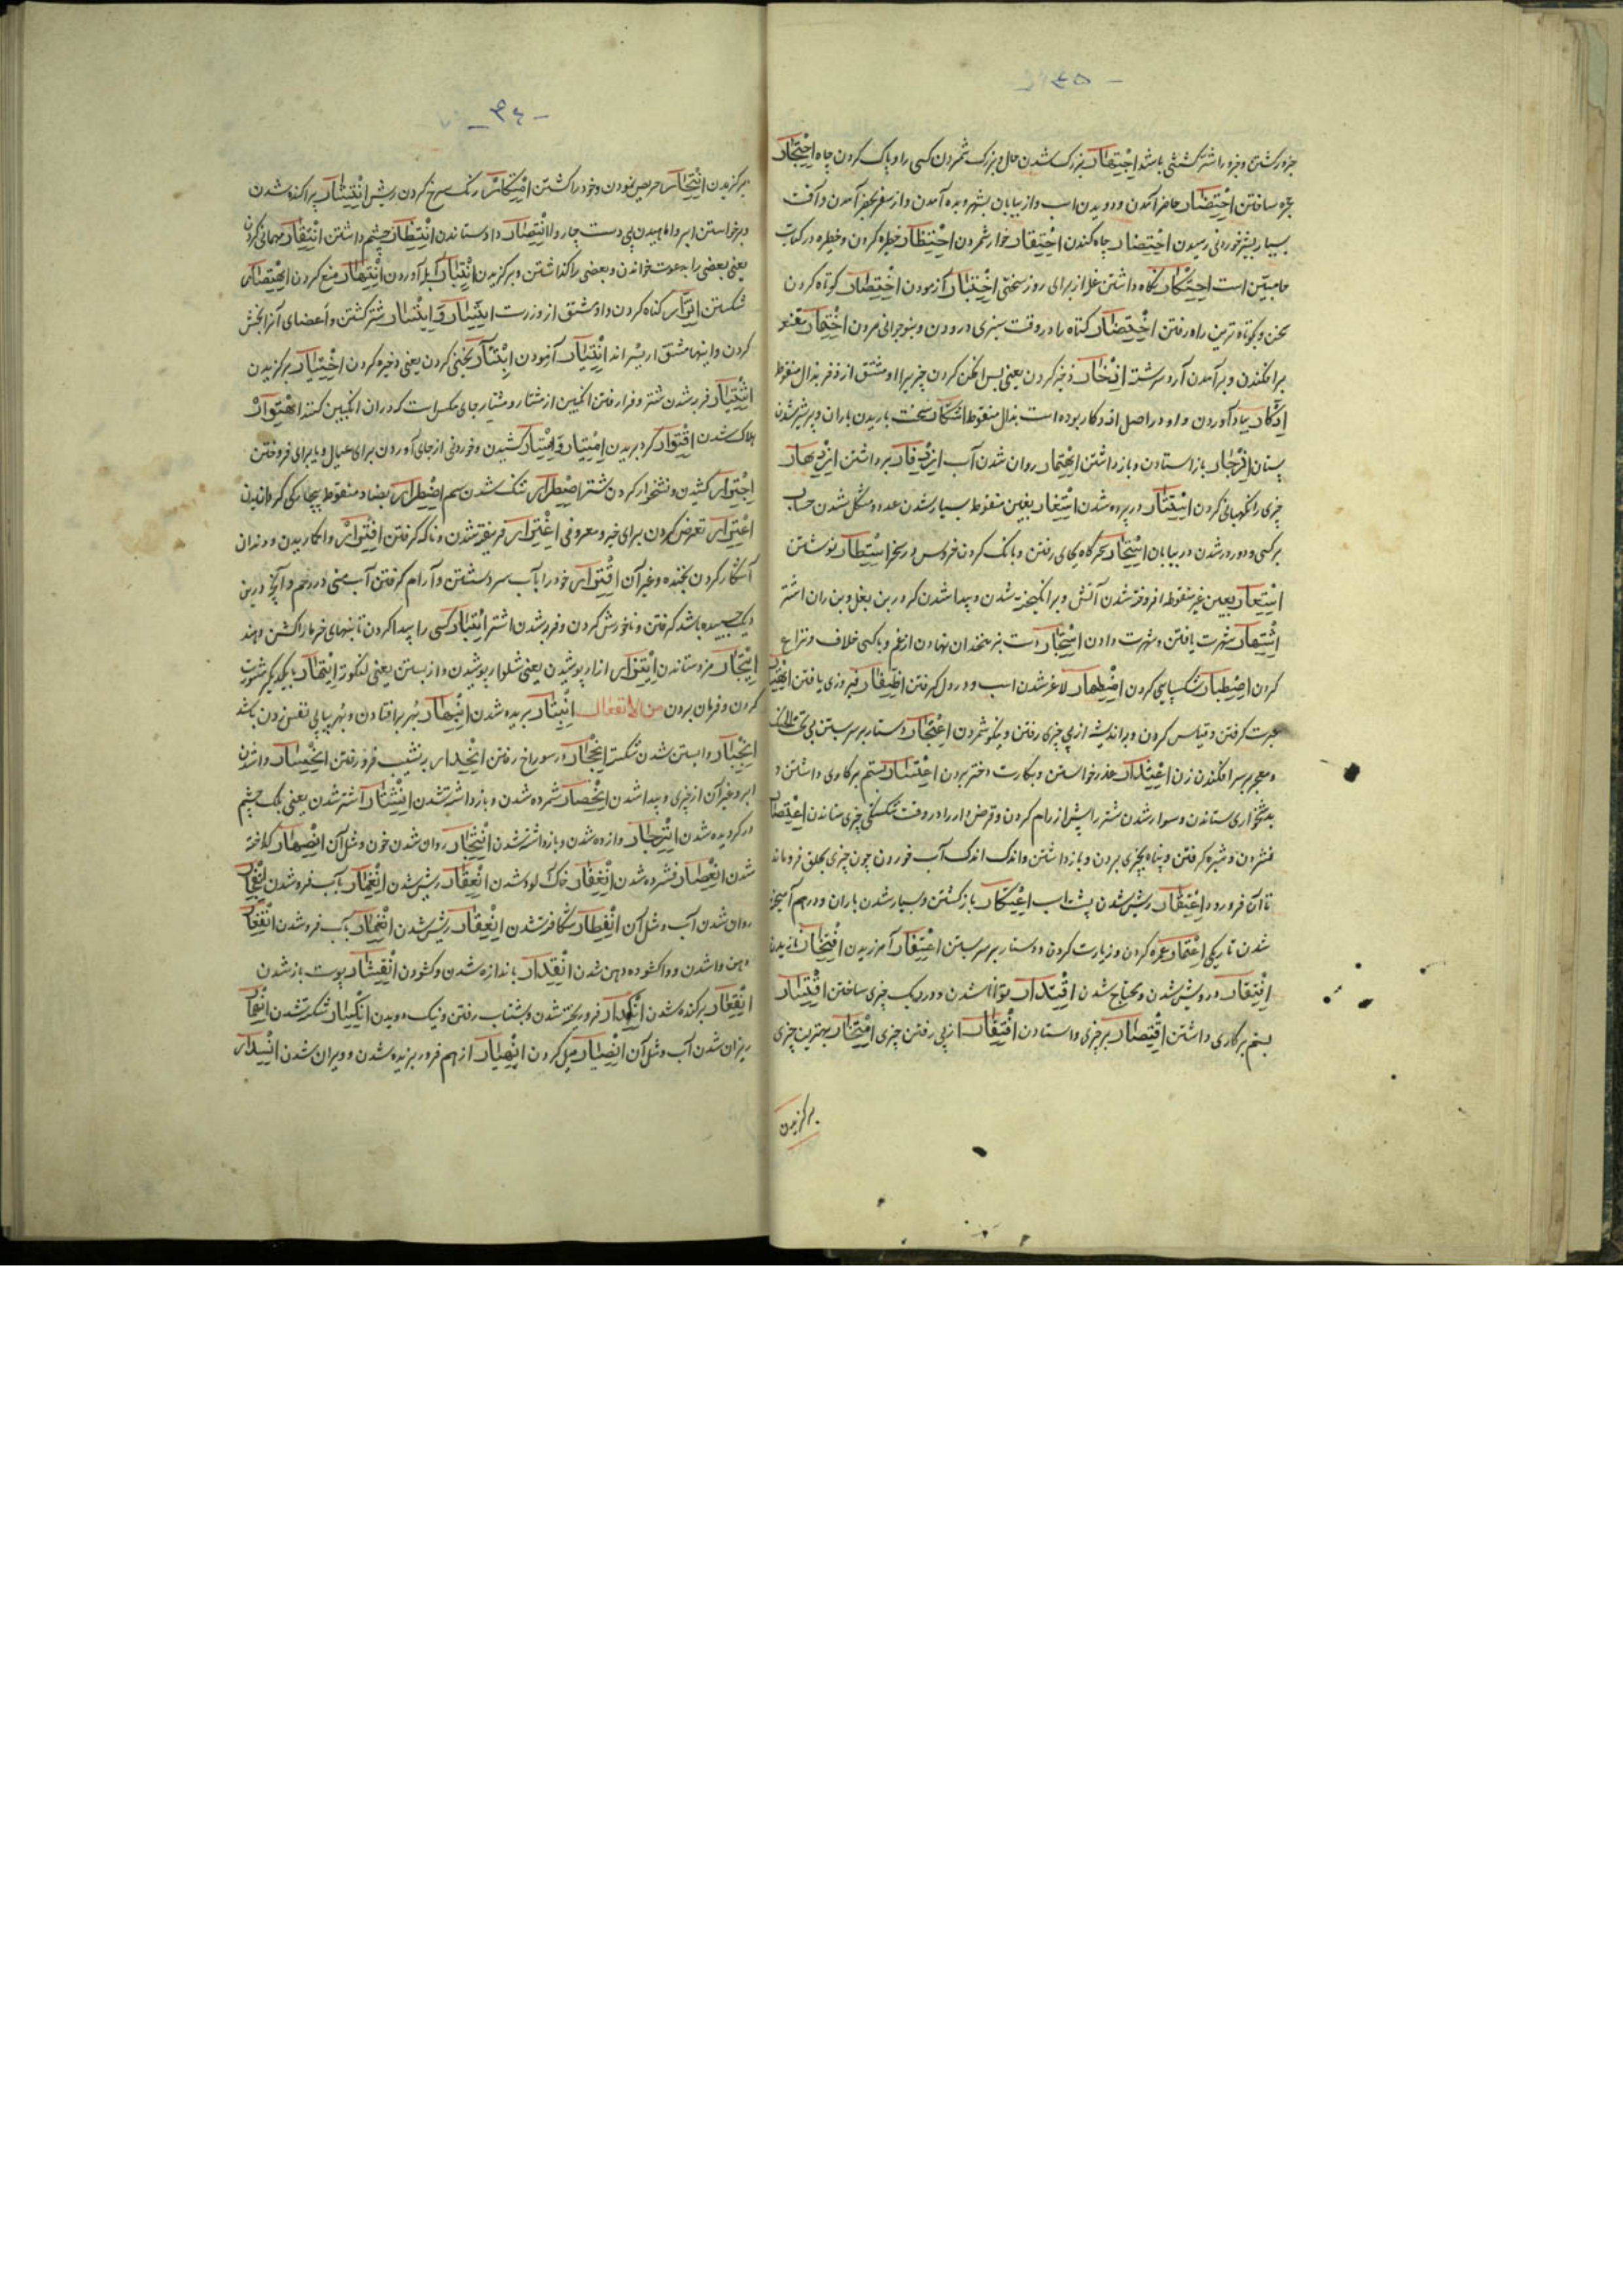 ۳۵
جزور کشتن و جزور اشتر کشتنی باشد اجتهار بزرک شدن حال و بزرک شمردن کسی را و پاک کردن چاه احتجار
حجره ساختن احتضار حاضر آمدن و دویدن اسب و از بیابان بشهر و بده آمدن و از سفر بحضر آمدن و آفت
بسیار بشیر خوردنی رسیدن احتفار چاه کندن احتقار خوار شمردن احتظار خطیره کردن و خطیره در کتاب
است احتکار نگاه داشتن غله از برای روز سختی اختبار آزمودن اختصار کوتاه کردن
سخن و بکوتاه ترین راه رفتن اختضار کیاه را در وقت سبزی درودن و بنو جوانی مردن اختمار مقنعه
برافکندن و برآمدن آرد سرشته ادخار ذخیره کردن یعنی پس افکن کردن چیزیرا و مشتق از ذخر بذال منقوط
ادکار بیاد آوردن و او در اصل اذدکار بوده است بذال منقوط اشتکار سخت باریدن باران و پر شیر شدن
پستان ازدجار باز استادن و باز داشتن انهمار روان شدن آب ازدفار برداشتن ازدهار
چیزی را نکهبانی کردن استتار در پرده شدن استغار بغین منقوط بسیار شدن عدد و مشکل شدن حساب
بر کسی و دور در شدن در بیابان استحار سحرگاه بجای رفتن و بانک کردن خروس در سحر استطار نوشتن
استعار بعین غیر منقوطه افروخته شدن آتش و برانکیخته شدن و پیدا شدن کر در بن بغل و بن ران اشتر
اشتهار شهرت یافتن و شهرت دادن اشتجار دست بزنخدان نهادن از غم و با کسی خلاف و نزاع
کردن اصطبار شکیبایی کردن اضطمار لاغر شدن اسب و در دل کرفتن اظفار فیروزی یافتن اعتبار
عبرت کرفتن و قیاس کردن و براندیشه از پی چیزی رفتن و نیکو شمردن اعتجار دستار بر سر بستن بی تحت الحنک
و معجر بر سر افکندن زن اعتذار عذر خواستن و بکارت دختر بردن اعتسار بستم بر کاری داشتن و
بدشخواری ستاندن و سوار شدن شتر را پیش از رام کردن و قرض دار را در وقت تنکدستی چیزی ستاندن اعتصار
فشردن و شیره کرفتن و پناه بچیزی بردن و باز داشتن و اندک اندک آب خوردن چون چیزی بحلق فرو ماند
تا آن فرو رود اعتقار ریش شدن پشت اسب اعتکار باز کشتن و بسیار شدن باران و در هم آمیخته
شدن تاریکی اعتمار عمره کردن و زیارت کردن و دستار بر سر بستن اغتفار آمرزیدن افتخار نازیدن
افتقار درویش شدن و محتاج شدن اقتدار توانا شدن و در دیک چیزی ساختن اقتسار
بستم بر کاری داشتن اقتصار بر چیزی وا استادن اقتفار از پی رفتن چیزی امتخار بهترین چیزی
برکزیدن
۳۶
برکزیدن انتحار حریص نمودن و خود را کشتن رنک سرخ کردن ریش انتشار پراکنده شدن
و برخواستن ابر و اماسیدن پی دست چاروا انتصار داد ستاندن انتظار چشم داشتن انتقار مهمانی کردن
یعنی بعضی را بدعوت خواندن و بعضی را کذاشتن و برکزیدن انتبار آبله آوردن انتهار منع کردن اهتصار
شکستن اتزار کناه کردن و او مشتق از وزرست ایتسار و اتسار شتر کشتن و اعضای آنرا بخش
کردن و اینها مشتق از یسر اند ابتیار آزمودن ابتئار یخنی کردن یعنی ذخیره کردن اختیار برکزیدن
اشتیار فربه شدن شتر و فرا رفتن انکبین از مشتار و مشتار جای مکس است که در آن انکبین کنند اهتوار
هلاک شدن اقتوار کرد بریدن امتیار و امتیار کشیدن و خوردنی از جای آوردن برای عیال و یا برای فروختن
اجترار کشیدن و نشخوار کردن شتر اصطرار تنک شدن سم اضطرار بضاد منقوط بیچارکی کردانیدن
اعترار تعرض کردن برای خیر و معروفی اغترار فریفته شدن و ناکه کرفتن افترار وا کاریدن و دندان
آشکار کردن بخنده و غیر آن اقترار خود را بآب سرد شستن و آرام کرفتن آب منی در رحم و آنچه در بن
دیک چسبیده باشد کرفتن و ناخورش کردن و فربه شدن اشتر ایتبار کسی را پیدا کردن تا نخلهای خرما را کشن دهند
ایتجار مزد ستاندن ایتزار ازار پوشیدن یعنی شلوار پوشیدن و ازار بستن یعنی لنکوته ایتمار با یکدیکر مشورت
کردن و فرمان بردن من الانفعال انبتار بریده شدن انبهار بهر بر افتادن و بهر پیاپی نفس زدن باشد
انجبار وا بستن شدن شکسته انجحار در سوراخ رفتن انحدار بنشیب فرو رفتن انحسار وا شدن
ابر و غیر آن از چیزی و پیدا شدن انحصار شمرده شدن و باز داشته شدن انشتار اشتر شدن یعنی پلک چشم
در کردیده شدن انزجار وا زده شدن و باز داشته شدن انثجار روان شدن خون و مثل آن انصهار کداخته
شدن انعصار فشرده شدن انعفار خاک آلود شدن انعقار ریش شدن انغمار بآب فرو شدن انفجار
روان شدن آب و مثل آن انفطار شکافته شدن انعقار ریش شدن انغمار بآب فرو شدن انفغار
دهن وا شدن و وا کشوده دهن شدن انقدار باندازه شدن و کشودن انقشار پوست باز شدن
انقعار برکنده شدن انکدار فرو ریخته شدن و بشتاب رفتن و نیک دویدن انکسار شکسته شدن انهمار
ریزان شدن آب و مثل آن انصیار میل کردن انهیار از هم فرو ریزیده شدن و ویران شدن انسدار